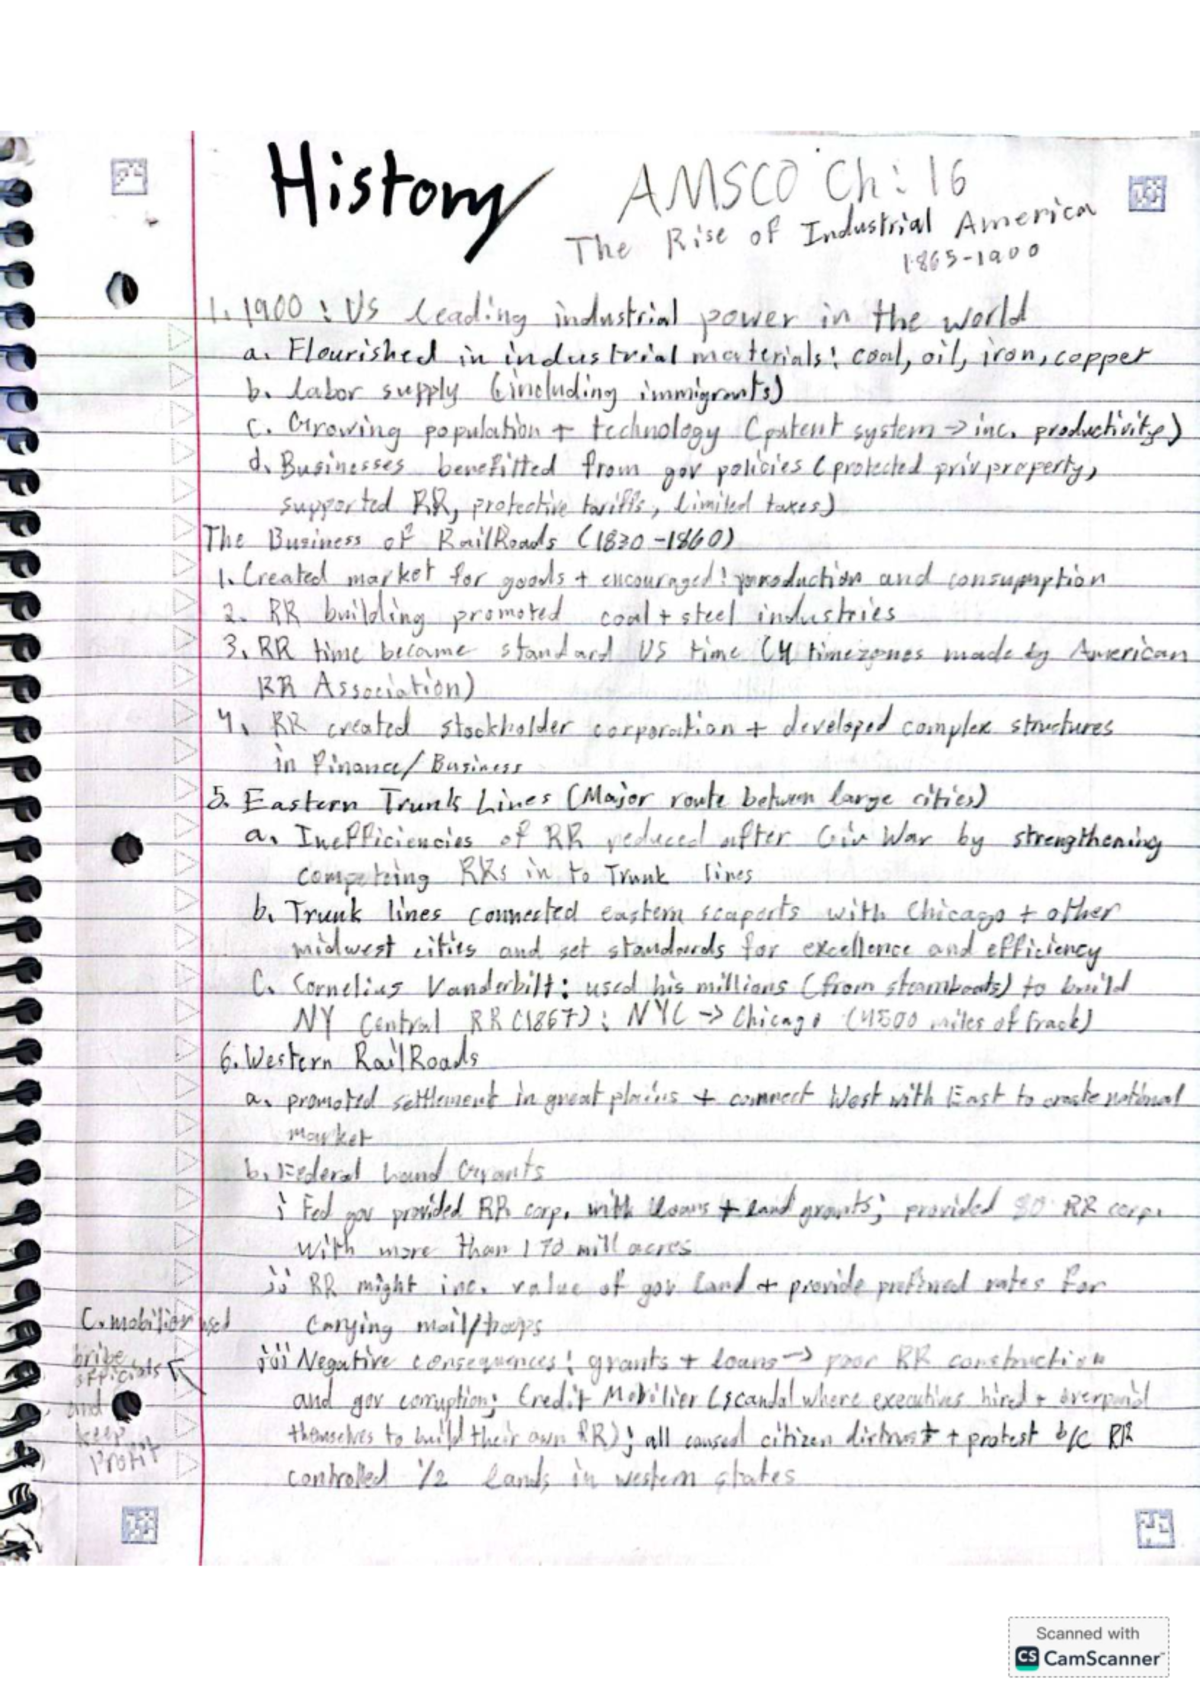 History
AMSCO Ch: 16
The Rise of Industrial America
1865-1900
1. 1900: US leading industrial power in the world
a. Flourished in industrial materials: coal, oil, iron, copper
b. labor supply (including immigrants)
c. Growing population + technology (patent system → inc. productivity)
d. Businesses benefitted from gov policies (protected priv property,
supported RR, protective tariffs, limited taxes)
The Business of RailRoads (1830-1860)
1. Created market for goods + encouraged: production and consumption
2. RR building promoted coal + steel industries
3. RR time became standard US time (4 timezones made by American
RR Association)
4. RR created stockholder corporation + developed complex structures
in Finance/Business
5. Eastern Trunk Lines (Major route between large cities)
a. Inefficiencies of RR reduced after Civ War by strengthening
competeing RRs in to Trunk lines
b. Trunk lines connected eastern seaports with Chicago + other
midwest cities and set standards for excellence and efficiency
C. Cornelius Vanderbilt: used his millions (from steamboats) to build
NY Central RR (1867): NYC → Chicago (4500 miles of track)
6. Western RailRoads
a. promoted settlement in great plains + connect West with East to create national
market
b. Federal Land Grants
i Fed gov provided RR corp. with loans + land grants; provided 80 RR corp.
with more than 170 mill acres
ii RR might inc. value of gov land + provide preferred rates for
carying mail/troops
iii Negative consequences: grants + loans → poor RR construction
and gov corruption; Credit Mobilier (scandal where executives hired + overpaid
themselves to build their own RR); all caused citizen distrust + protest b/c RR
controlled 1/2 lands in western states
C. mobilier used
bribe
officials
and
keep
Profit
Scanned with
CS CamScanner